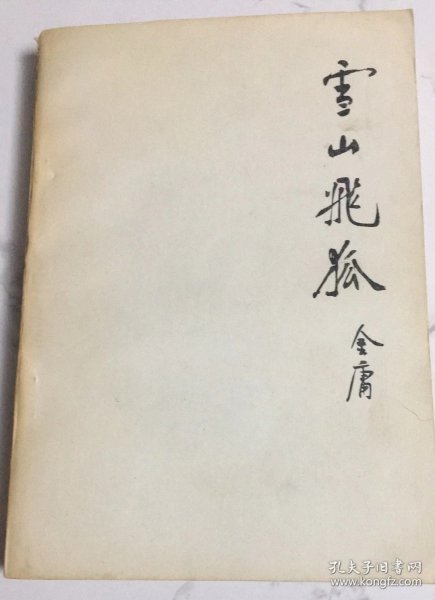 雪山飛狐
金庸
孔夫子旧书网
www.kongfz.com